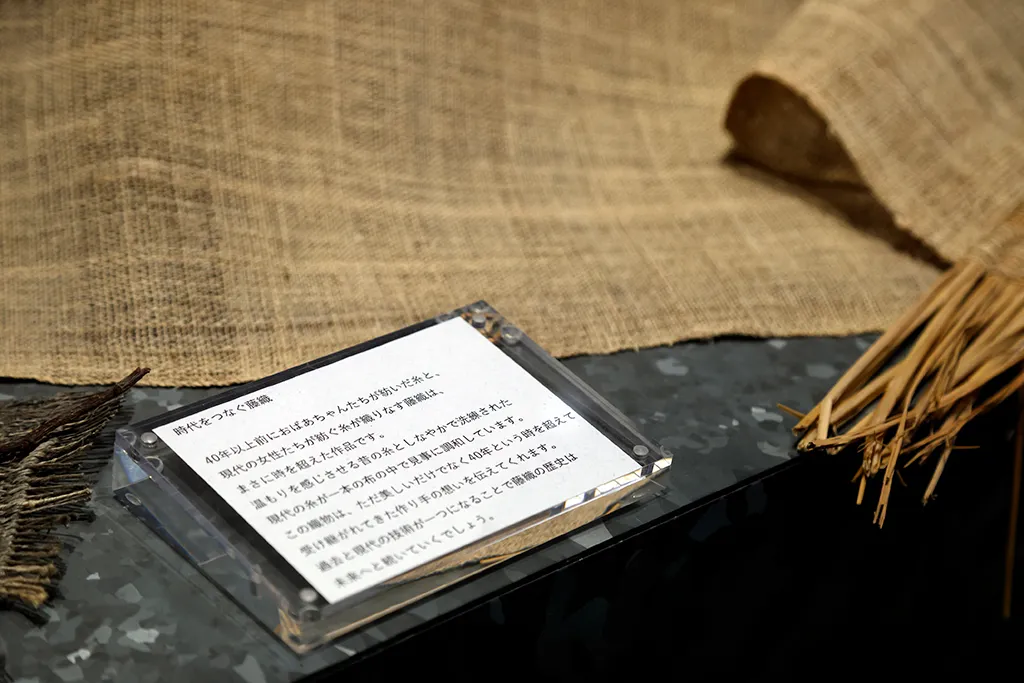 時代をつなぐ藤織
40年以上前におばあちゃんたちが紡いだ糸と、
現代の女性たちが紡ぐ糸が織りなす藤織は、
まさに時を超えた作品です。
温もりを感じさせる昔の糸としなやかで洗練された
現代の糸が一本の布の中で見事に調和しています。
この織物は、ただ美しいだけでなく40年という時を超えて
受け継がれてきた作り手の想いを伝えてくれます。
過去と現代の技術が一つになることで藤織の歴史は
未来へと続いていくでしょう。